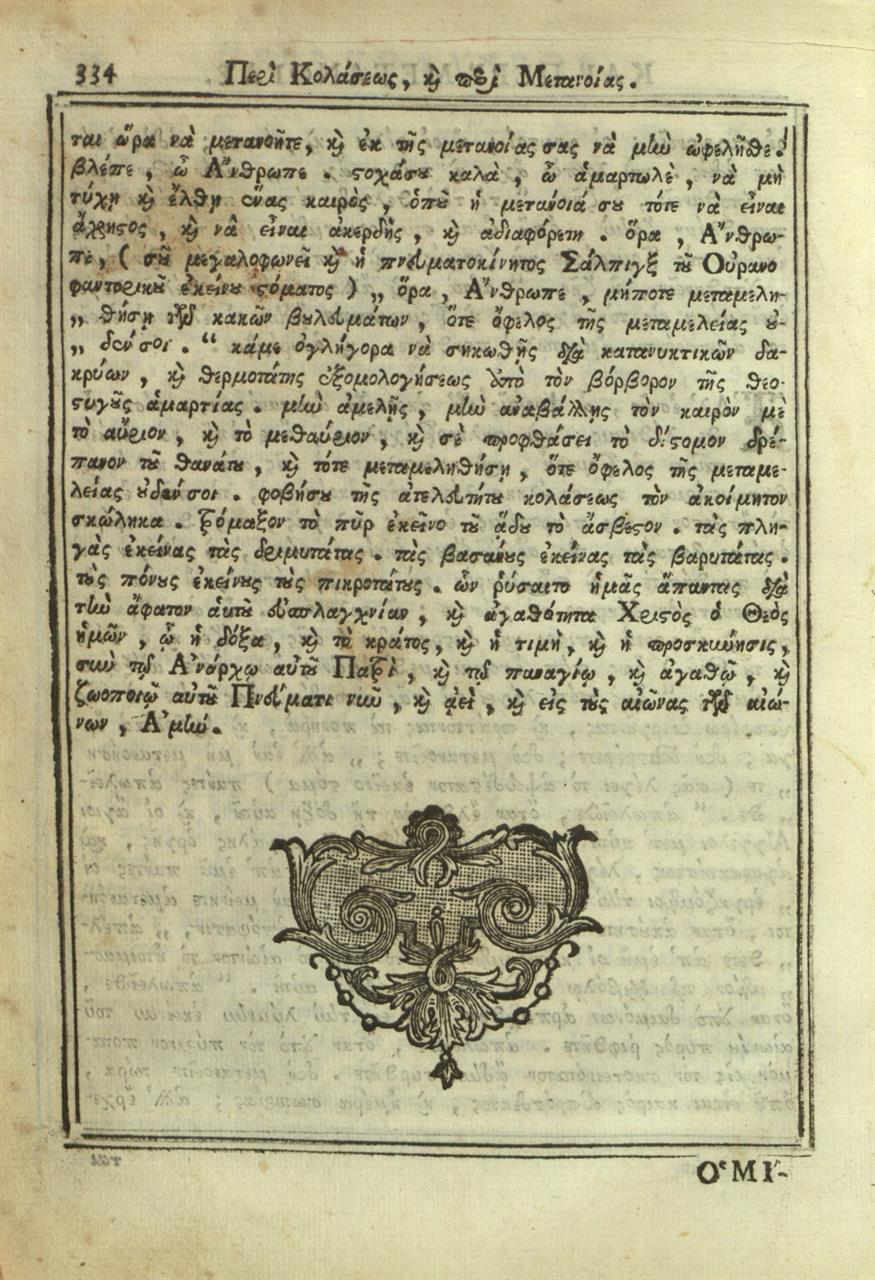 334 Περὶ Κολάσεως, καὶ περὶ Μετανοίας.
ται ὥρα νὰ μετανοῆτε, καὶ ἐκ τῆς μετανοίας σας νὰ μὴν ὠφεληθῆτε.
βλέπε, ὦ Ἄνθρωπε. στοχάσου καλὰ, ὦ ἁμαρτωλὲ, νὰ μὴ
τύχῃ καὶ ἔλθῃ ἕνας καιρὸς, ὁποῦ ἡ μετάνοιά σου τότε νὰ εἶναι
ἄχρηστος, καὶ νὰ εἶναι ἀκερδὴς, καὶ ἀδιαφόρετη. ὅρα, Ἄνθρω-
πε, ( σοῦ μεγαλοφωνεῖ καὶ ἡ πνευματοκίνητος Σάλπιγξ τοῦ Οὐρανο
φαντορικοῦ ἐκείνου στόματος ) „ ὅρα, Ἄνθρωπε, μήποτε μεταμελη-
„ θήσῃ τῶν κακῶν βουλευμάτων, ὅτε ὄφελος τῆς μεταμελείας οὐ-
„ δέν σοι. “ κάμε ὀγλήγορα νὰ σηκωθῇς διὰ κατανυκτικῶν δα-
κρύων, καὶ θερμοτάτης ἐξομολογήσεως ὑπὸ τὸν βόρβορον τῆς θεο-
στυγοῦς ἁμαρτίας. μὴν ἀμελῇς, μὴν ἀναβάλλῃς τὸν καιρὸν μὲ
τὸ αὔριον, καὶ τὸ μεθαύριον, καὶ σὲ προφθάσει τὸ δίστομον δρέ-
πανον τοῦ θανάτου, καὶ τότε μεταμεληθήσῃ, ὅτε ὄφελος τῆς μεταμε-
λείας οὐδέν σοι. φοβήσου τῆς ἀτελευτήτου κολάσεως τὸν ἀκοίμητον
σκώληκα. τρόμαξον τὸ πῦρ ἐκεῖνο τοῦ ᾅδου τὸ ἄσβεστον. τὰς πλη-
γὰς ἐκείνας τὰς δριμυτάτας. τὰς βασάνους ἐκείνας τὰς βαρυτάτας.
τοὺς πόνους ἐκείνους τοὺς πικροτάτους. ὧν ῥύσαιτο ἡμᾶς ἅπαντας διὰ
τὴν ἄφατον αὑτοῦ εὐσπλαγχνίαν, καὶ ἀγαθότητα Χριστὸς ὁ Θεὸς
ἡμῶν, ᾧ ἡ δόξα, καὶ τὸ κράτος, καὶ ἡ τιμὴ, καὶ ἡ προσκύνησις,
σὺν τῷ Ἀνάρχῳ αὐτοῦ Πατρὶ, καὶ τῷ παναγίῳ, καὶ ἀγαθῷ, καὶ
ζωοποιῷ αὐτοῦ Πνεύματι νῦν, καὶ ἀεὶ, καὶ εἰς τοὺς αἰῶνας τῶν αἰώ-
νων, Ἀμήν.
ὉΜΙ-